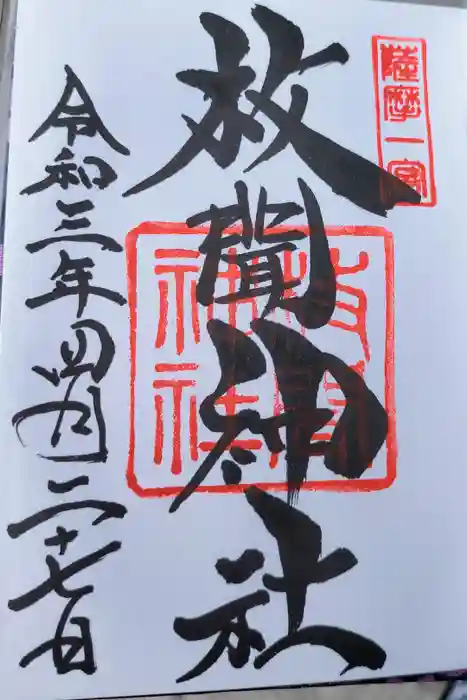 薩摩一宮
枚聞神社
枚聞
神社
令和三年四月二十七日